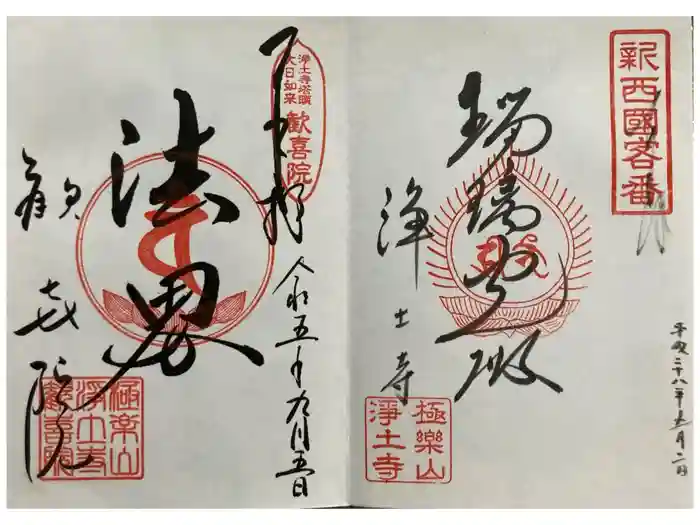 新西國客番
瑠璃光殿
浄土寺
極樂山
淨土寺
平成二十八年五月二日
浄土寺塔頭
大日如来
歓喜院
奉拝
法界
歓喜院
令和五年九月五日
極楽山
浄土寺
歓喜院